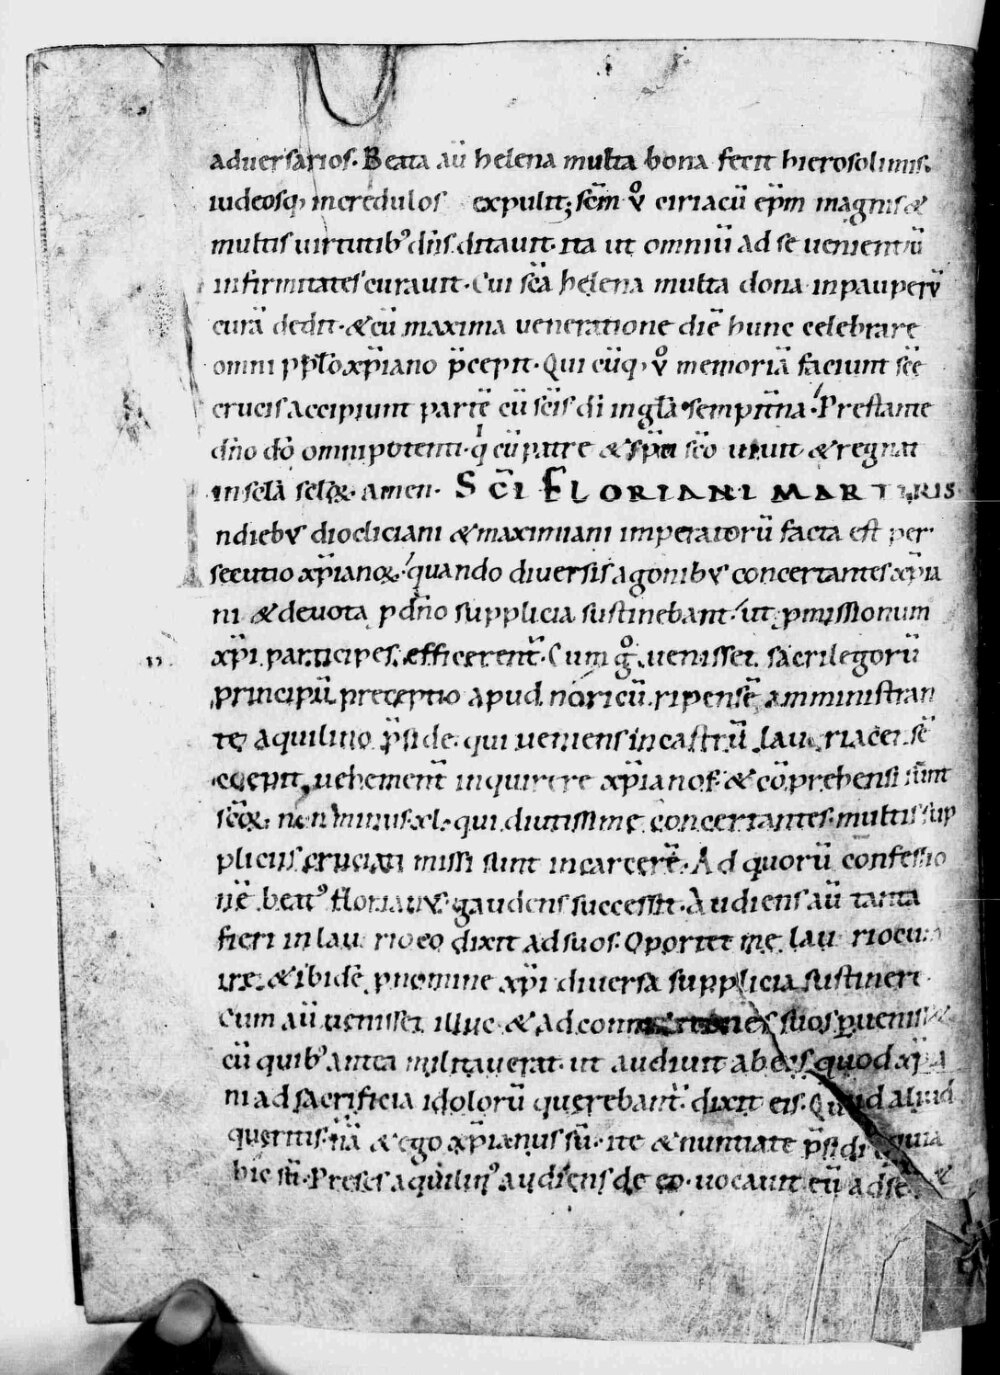 aduersarios. Beata aū helena multa bona fecit hierosolimis.
iudeosq; incredulos expulit; sc̄m v̊ ciriacū ep̄m magnis &
multis uirtutib; dn̄s ditauit. ita ut omniū ad se uenientiū
infirmitates curauit. Cui sc̄a helena multa dona in pauperū
curā dedit. & cū maxima ueneratione diē hunc celebrare
omni pp̄lo xp̄iano p̄cepit. Qui cūq; v̊ memoriā faciunt sc̄e
crucis accipiunt partē cū sc̄is dī in gl̄a sempit̄na. Prestante
dn̄o dō omnipotenti. qͥ cū patre & sp̄u sc̄o uiuit & regnat
in sc̄la sc̄lꝝ. amen. SC̄I FLORIANI MARTIRIS.
ndiebꝰ diocliciani & maximiani imperatorū facta est per
secutio xp̄ianoꝝ. quando diuersis agonibꝰ concertantes xp̄ia
ni & deuota p dn̄o supplicia sustinebant. ut ꝓmissionum
xp̄i participes efficerent̄. Cum g̊ uenisset sacrilegorū
principū preceptio apud noricū ripensē amministran
te aquilino p̄side. qui ueniens in castrū lau riacensē
coepit uehement̄ inquirere xp̄ianos. & cōprehensi sunt
sc̄oꝝ non minus xl. qui diutissime concertantes. multis sup
pliciis cruciati missi sunt in carcerē. Ad quorū confessio
nē beatꝰ florianꝰ gaudens successit. Audiens aū tanta
fieri in lau rioco dixit ad suos. Oportet me lau riocum
ire. & ibidē p nomine xp̄i diuersa supplicia sustinere.
Cum aū uenisset illuc & ad suos ꝑuenisset
cū quibꝰ antea militauerat. ut audiuit ab eis quod xp̄ia
ni ad sacrificia idolorū querebant̄. dixit eis. Quid aliud
queritis. nā & ego xp̄ianus sū. ite & nuntiate p̄sidi quia
hic sū. Preses aquilinꝰ audiens de eo. uocauit eū ad se. &